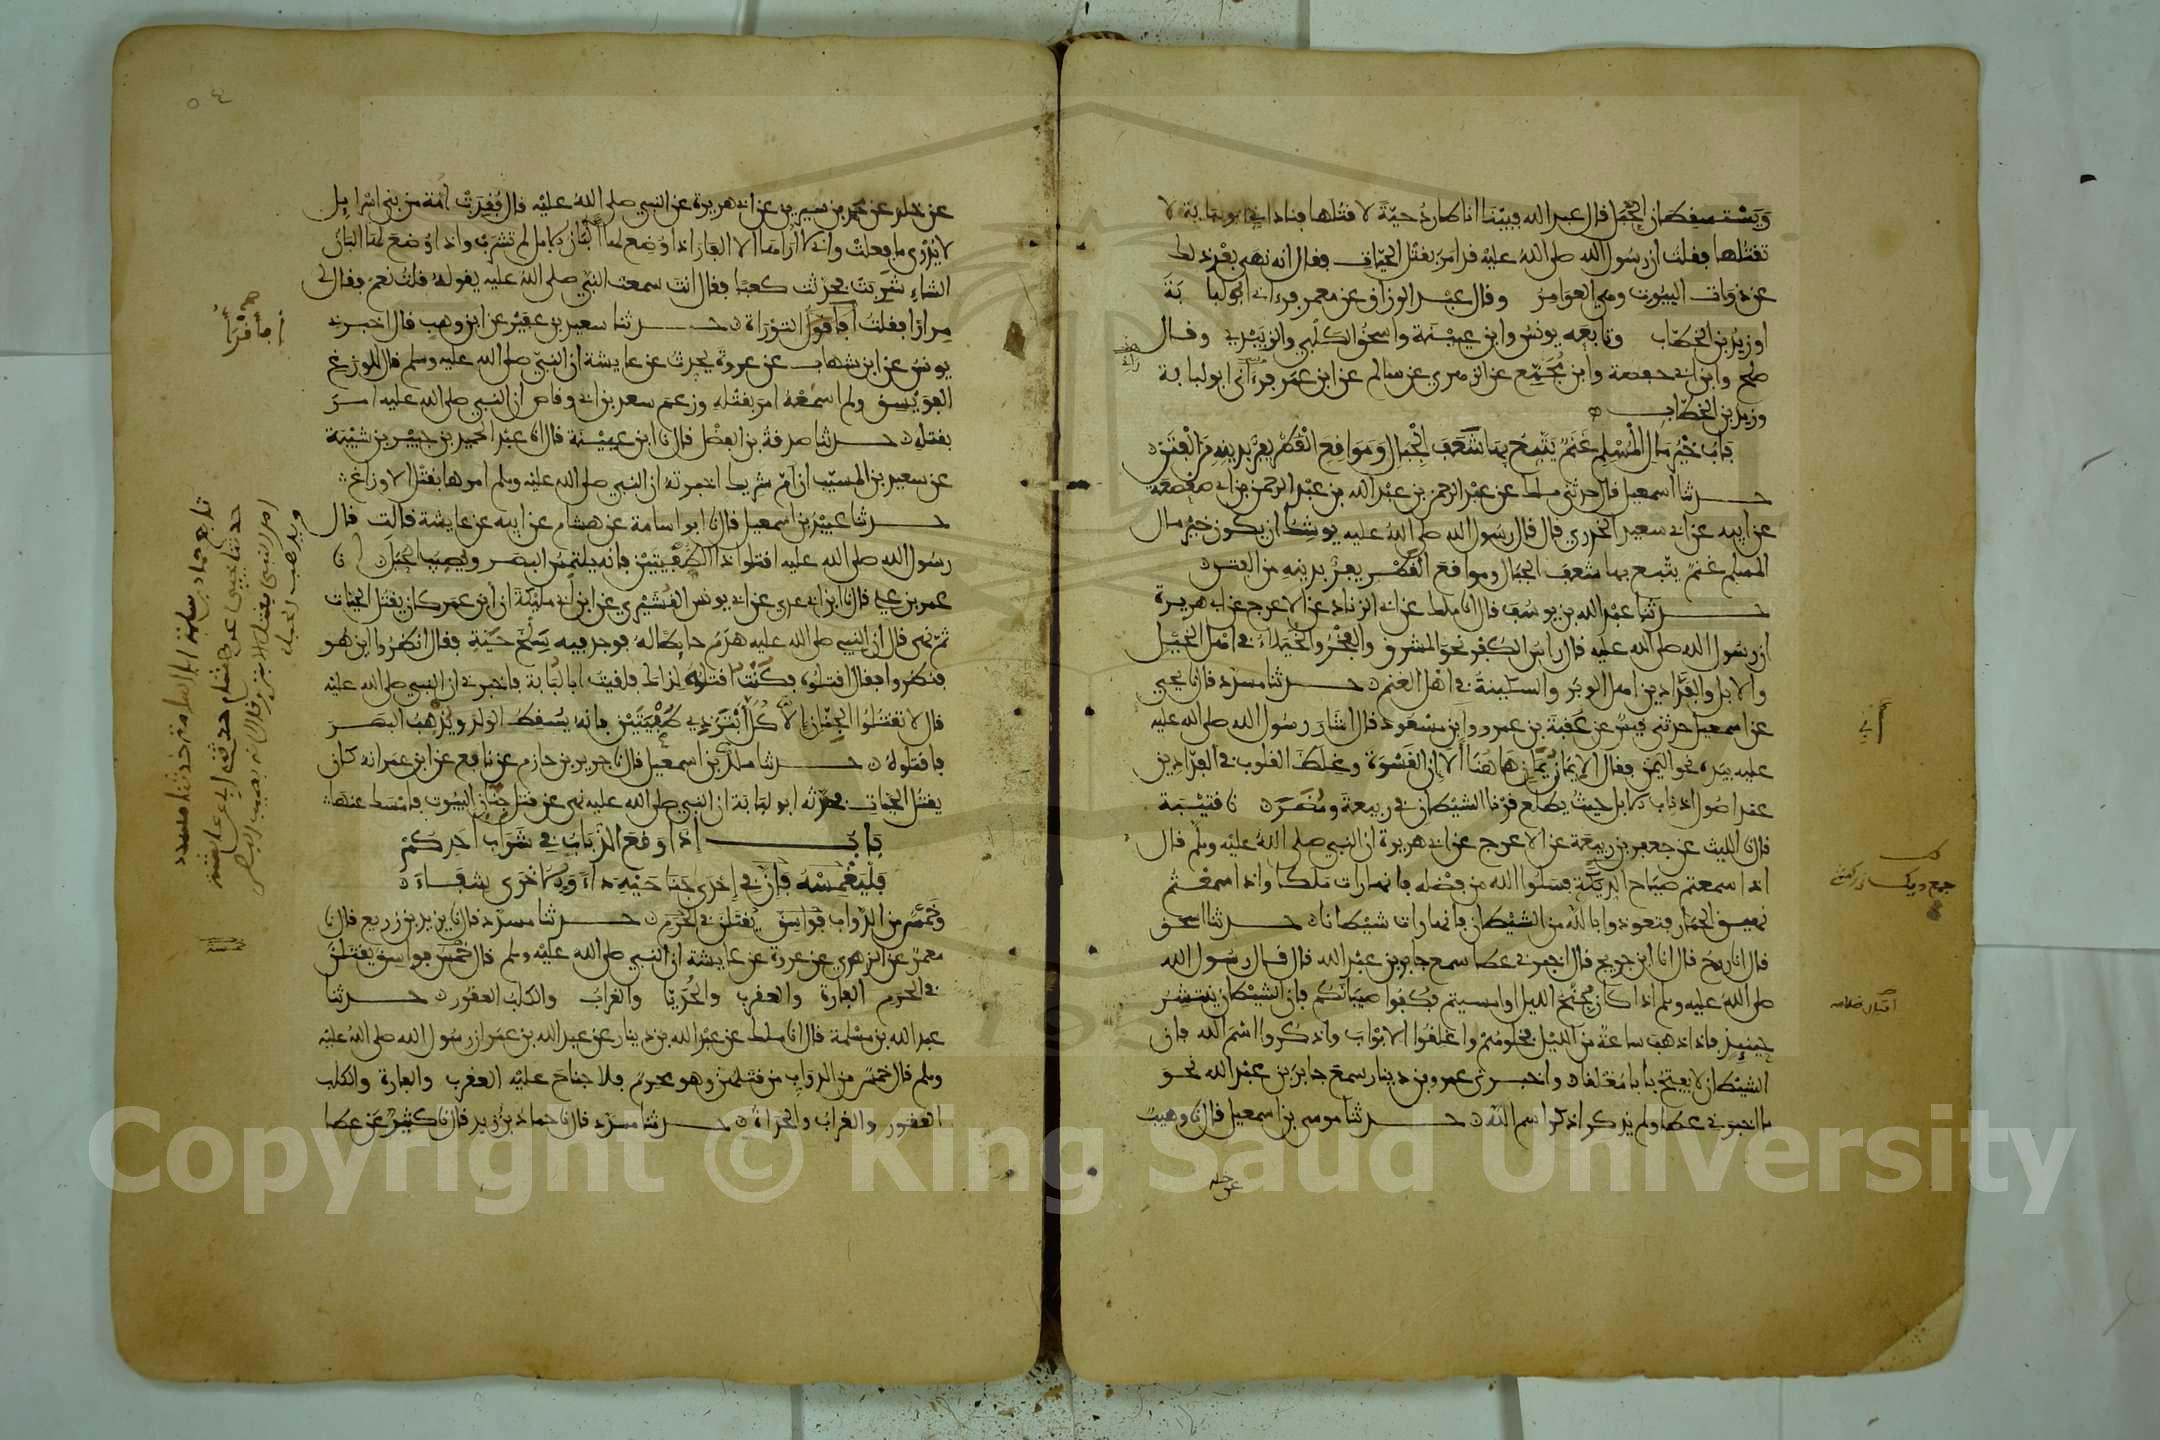 ويستسقطان الحبل قال عبد الله فبينا انا اطارد حية لاقتلها فناداني ابو لبابة لا
تقتلها فقلت ان رسول الله صلى الله عليه قد امر بقتل الحيات فقال انه نهى بعد ذلك
عن ذوات البيوت وهي العوامر وقال عبد الرزاق عن معمر فرءاني ابو لبابة
او زيد بن الخطاب وتابعه يونس وابن عيينة واسحق الكلبي والزبيدي وقال
صلح وابن ابي حفصة وابن مجمع عن الزهري عن سالم عن ابن عمر فرءاني ابو لبابة
وزيد بن الخطاب
باب خير مال المسلم غنم يتبع بها شعف الجبال ومواقع القطر يفر بدينه من الفتن
حدثنا اسمعيل قال حدثني ملك عن عبد الرحمن بن عبد الله بن عبد الرحمن بن ابي صعصعة
عن ابيه عن ابي سعيد الخدري قال قال رسول الله صلى الله عليه يوشك ان يكون خير مال
المسلم غنم يتبع بها شعف الجبال ومواقع القطر يفر بدينه من الفتن
حدثنا عبد الله بن يوسف قال انا ملك عن ابي الزناد عن الاعرج عن ابي هريرة
ان رسول الله صلى الله عليه قال راس الكفر نحو المشرق والفخر والخيلاء في اهل الخيل
والابل والفدادين اهل الوبر والسكينة في اهل الغنم حدثنا مسدد قال نا يحيى
عن اسمعيل حدثني قيس عن عقبة بن عمرو وابن مسعود قال اشار رسول الله صلى الله عليه
عليه بيده نحو اليمن فقال الايمان يمان هاهنا الا ان القسوة وغلظ القلوب في الفدادين
عند اصول اذناب الابل حيث يطلع قرنا الشيطان في ربيعة ومضر نا قتيبة
قال نا الليث عن جعفر بن ربيعة عن الاعرج عن ابي هريرة ان النبي صلى الله عليه وسلم قال
اذا سمعتم صياح الديكة فسلوا الله من فضله فانها رات ملكا واذا سمعتم
نهيق الحمار فتعوذوا بالله من الشيطان فانها رات شيطانا حدثنا اسحق
قال انا روح قال انا ابن جريج قال اخبرني عطا سمع جابر بن عبد الله قال قال رسول الله
صلى الله عليه وسلم اذا كان جنح الليل او امسيتم فكفوا صبيانكم فان الشيطان ينتشر
حينيذ فاذا ذهب ساعة من الليل فخلوهم واغلقوا الابواب واذكروا اسم الله فان
الشيطان لا يفتح بابا مغلقا واخبرني عمرو بن دينار سمع جابر بن عبد الله نحو
ما اخبرني عطا ولم يذكر اذكروا اسم الله حدثنا موسى بن اسمعيل قال نا وهيب
عن خلد
جمع ديك
٥٤
عن خلد عن محمد بن سيرين عن ابي هريرة عن النبي صلى الله عليه قال فقدت امة من بني اسراءيل
لا يدرى ما فعلت واني لا اراها الا الفار اذا وضع لها البان الابل لم تشرب واذا وضع لها البان
الشاء شربت فحدثت كعبا فقال انت سمعت النبي صلى الله عليه يقوله قلت نعم فقال لي
مرارا فقلت افاقرا التوراة حدثنا سعيد بن عفير عن ابن وهب قال اخبرني
يونس عن ابن شهاب عن عروة يحدث عن عايشة ان النبي صلى الله عليه وسلم قال للوزغ
الفويسق ولم اسمعه امر بقتله وزعم سعد بن ابي وقاص ان النبي صلى الله عليه امر
بقتله حدثنا صدقة بن الفضل قال انا ابن عيينة قال نا عبد الحميد بن جبير بن شيبة
عن سعيد بن المسيب ان ام شريك اخبرته ان النبي صلى الله عليه وسلم امرها بقتل الاوزاغ
حدثنا عبيد بن اسمعيل قال نا ابو اسامة عن هشام عن ابيه عن عايشة قالت قال
رسول الله صلى الله عليه اقتلوا ذا الطفيتين فانه يلتمس البصر ويصيب الحبل نا
عمرو بن علي قال نا ابن ابي عدي عن ابي يونس القشيري عن ابن ابي مليكة ان ابن عمر كان يقتل الحيات
ثم نهى قال ان النبي صلى الله عليه هدم حايطا له فوجد فيه سلخ حية فقال انظروا اين هو
فنظروا فقال اقتلوه فكنت اقتلها لذلك فلقيت ابا لبابة فاخبرني ان النبي صلى الله عليه
قال لا تقتلوا الجنان الا كل ابتر ذي طفيتين فانه يسقط الولد ويذهب البصر
فاقتلوه حدثنا ملك بن اسمعيل قال نا جرير بن حازم عن نافع عن ابن عمر انه كان
يقتل الحيات فحدثه ابو لبابة ان النبي صلى الله عليه نهى عن قتل جنان البيوت فامسك عنها
باب اذا وقع الذباب في شراب احدكم
فليغمسه فان في احدى جناحيه داء وفي الاخرى شفاء
وخمس من الدواب فواسق يقتلن في الحرم حدثنا مسدد قال نا يزيد بن زريع قال نا
معمر عن الزهري عن عروة عن عايشة ان النبي صلى الله عليه وسلم قال خمس فواسق يقتلن
في الحرم الفارة والعقرب والحديا والغراب والكلب العقور حدثنا
عبد الله بن مسلمة قال انا ملك عن عبد الله بن دينار عن عبد الله بن عمر ان رسول الله صلى الله عليه
وسلم قال خمس من الدواب من قتلهن وهو محرم فلا جناح عليه العقرب والفارة والكلب
العقور والغراب والحداة حدثنا مسدد قال نا حماد بن زيد قال نا كثير عن عطا
أفأقرأ
تابعه حماد بن سلمة ابا اسامة حدثنا مسدد
حدثنا يحيى عن هشام حدثني ابي عن عايشة
امر النبي بقتل الابتر وقال انه يصيب البصر
ويذهب الحبل
Copyright © King Saud University